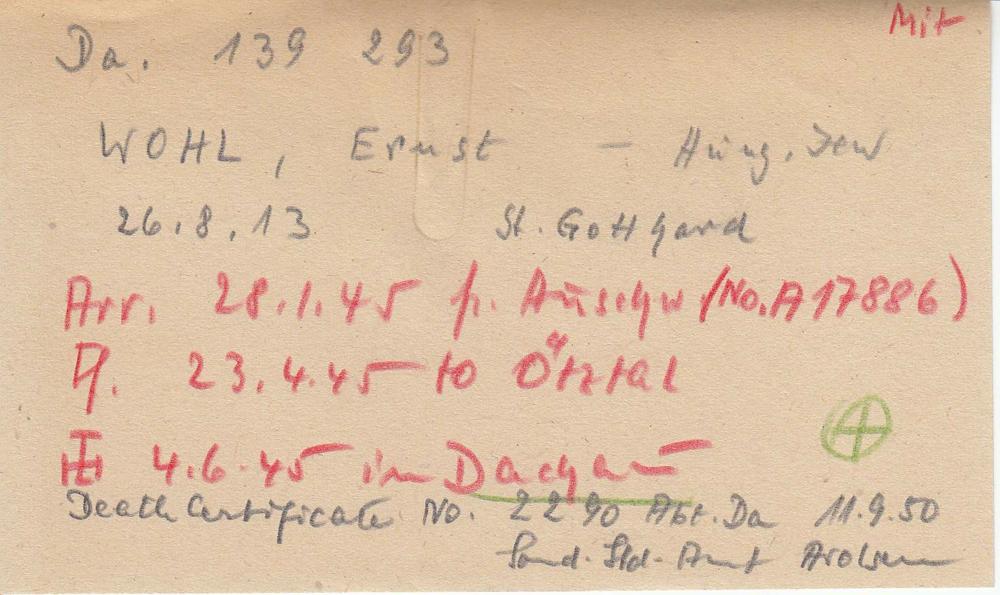 Mit
Da. 139 293
WOHL, Ernst — Hung. Jew
26.8.13 St. Gotthard
Arr. 28.1.45 fr. Auschw (No. A17886)
23.4.45 to Ötztal
4.6.45 in Dachau
Death Certificate No. 2290 Abt. Da 11.9.50
Sond. Std-Amt Arolsen